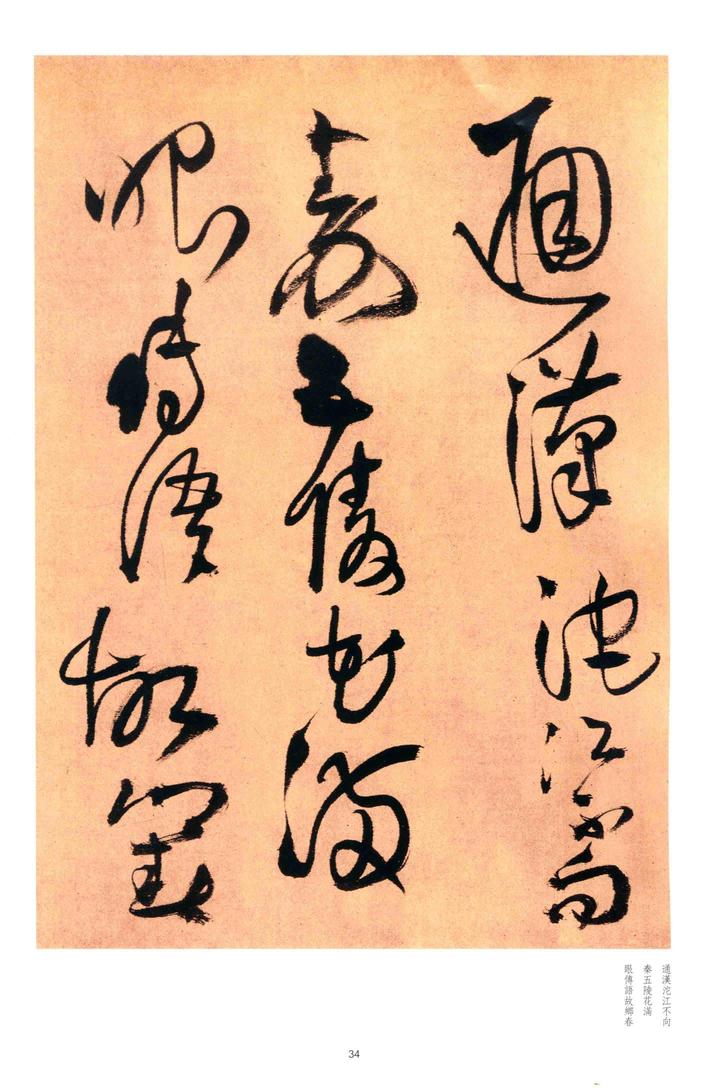 通漢沱江不向
秦五陵花滿
眼傳語故鄉春
通漢沱江不向
秦五陵花滿
眼傳語故鄉春
34